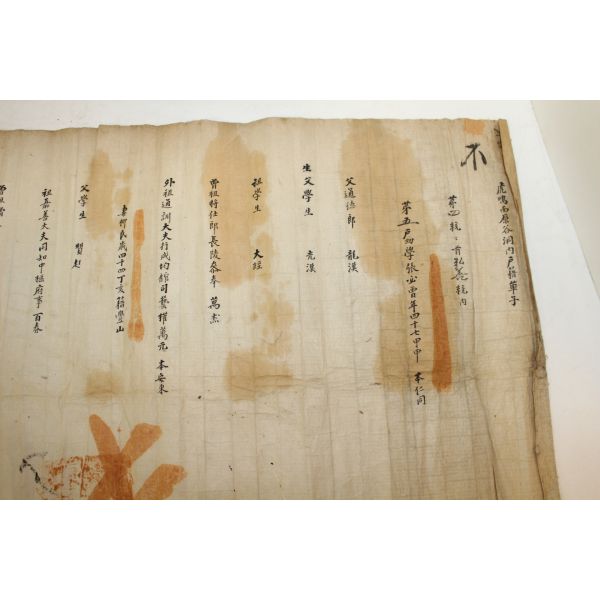 虎鳴面厚谷洞内戶籍單子
第四統 統內
第五戶幼學張必 年四十七甲申 本仁同
父通德郎 龍漢
生父學生 克漢
祖學生 大
曾祖將仕郎長陵參奉 萬杰
外祖通訓大夫行成均館司藝權萬元 本安東
妻柳氏歲四十四丁亥籍豊山
父學生 賢起
祖嘉善大夫同知中樞府事 百春
曾祖